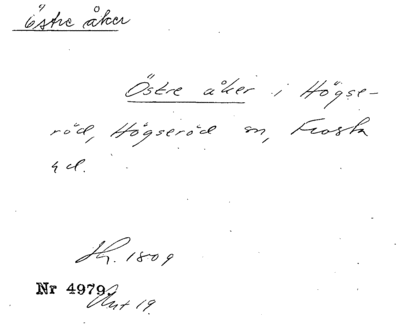 östre åker
Östre åker i Högse-
röd, Högseröd sn, Frosta
hd.
Sk. 1809
Nr 4979.
Akt 19.